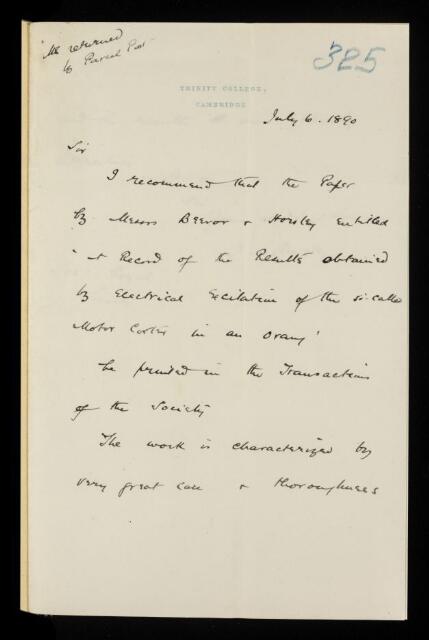 MS returned
by Parcel Post
325
TRINITY COLLEGE,
CAMBRIDGE
July 6. 1890
Sir
I recommend that the Paper
by Messrs Beevor & Horsley entitled
"A Record of the Results obtained
by Electrical Excitation of the so-called
Motor Cortex in an Orang'
be printed in the Transactions
of the Society
The work is characterized by
very great care & thoroughness